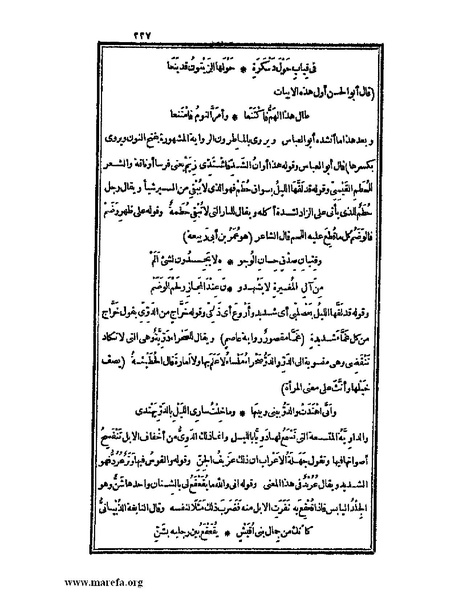 ٢٢٧
فى قباب حول دسكرة * حولها الزيتون قد ينعا
(قال أبو الحسن أول هذه الابيات
طال هذا الهم فاكتنعا * وأمر النوم فامتنعا
وبعد هذا ما أنشده أبو العباس ويروى بالماطرون الرواية المشهورة بفتح النون ويروى
بكسرها) قال أبو العباس وقوله هذا أوان الشد فاشتدى زيم يعنى فرسا أو ناقة والشعر
للحطم القيسى وقوله قد لفها الليل بسواق حطم فهو الذى لا يبقى من السير شيأ ويقال رجل
حطم للذى يأتى على الزاد لشدة أكله ويقال للنار التى لا تبقى حطمة وقوله على ظهر وضم
فالوضم كل ما قطع عليه اللحم قال الشاعر (هو عمر بن أبى ربيعة)
وفتيان صدق حسان الوجو * ه لا يجدون لشئ ألم
من آل المغيرة لا يشهدو * ن عند المجازر لحم الوضم
وقوله قد لفها الليل بعصلبى أى شديد وأروع أى ذكى وقوله خراج من الدوى يقول خراج
من كل غماء شديدة (غما مقصور رواية عاصم) ويقال للصحراء دوية وهى التى لا تكاد
تنقضى وهى منسوبة الى الدو والدو صحراء ملساء لا علم بها ولا أمارة قال الحطيئة (يصف
خيلها وأنث على معنى المرأة)
وأنى اهتدت والدو بينى وبينها * وما خلت سارى الليل بالدو يهتدى
والداوية المتسعة التى تسمع لها دويا بالليل وانما ذلك الدوى من أخفاف الابل تنفسح
أصواتها فيها وتقول جهلة الاعراب ان ذلك عزيف الجن وقوله والقوس فيها وتر عرد فهو
الشديد ويقال عرند فى هذا المعنى وقوله انى والله ما يقعقع لى بالشنان واحدها شن وهو
الجلد اليابس فاذا قعقع به نفرت الابل منه فضرب ذلك مثلا لنفسه وقال النابغة الذبيانى
كأنك من جمال بنى أقيش * يقعقع بين رجليه بشن
www.marefa.org